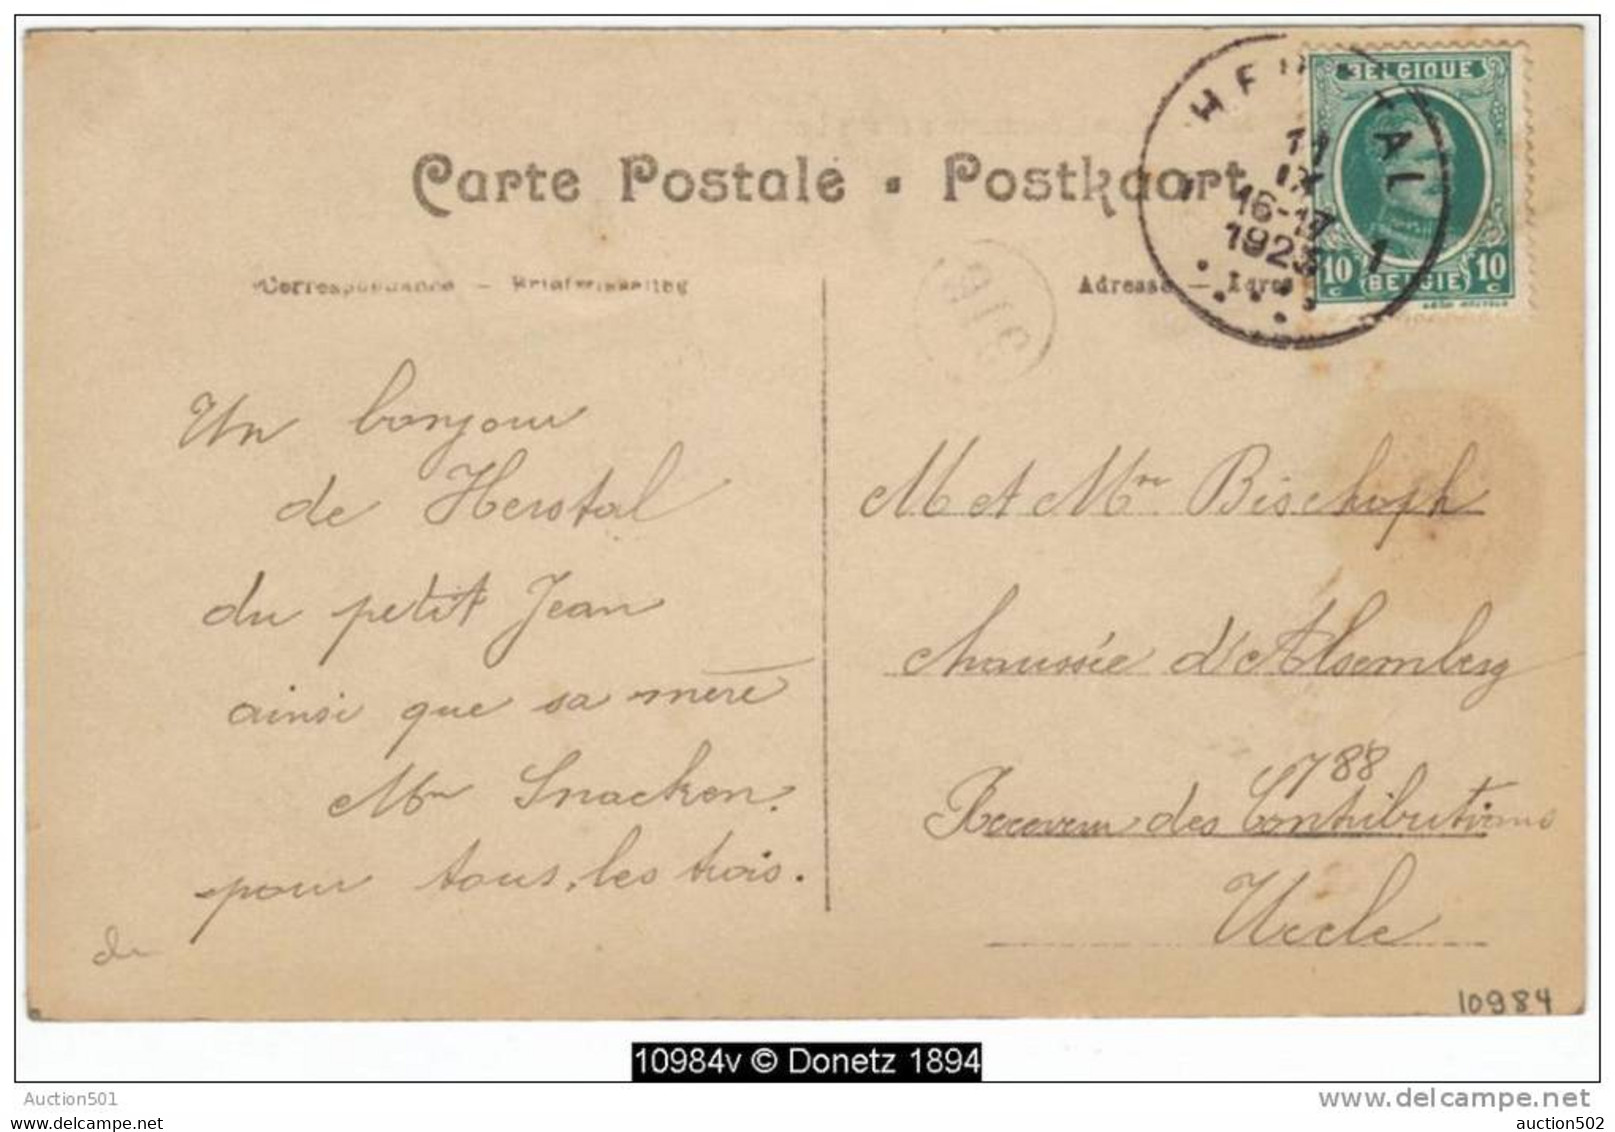 Carte Postale • Postkaart
Correspondance — Briefwisseling
Adresse — Adres
HERSTAL
11
IX
16-17
1923
1
BELGIQUE
10 10
BELGIE
Un bonjour
de Herstal
du petit Jean
ainsi que sa mère
Mme Snacken.
pour tous les trois.
M et Mme Bischoph
Chaussée d'Alsemberg
788
Receveur des Contributions
Uccle
10984
10984v © Donetz 1894
Auction501
auction501
www.delcampe.net
auction502